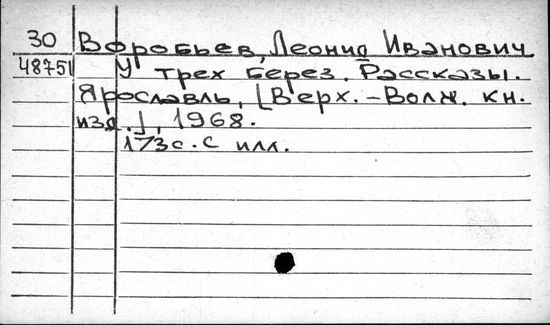 30 Воробьев, Леонид Иванович
48751 У трех берез. Рассказы.
Ярославль, [Верх.-Волж. кн.
изд.], 1968.
173с. с илл.